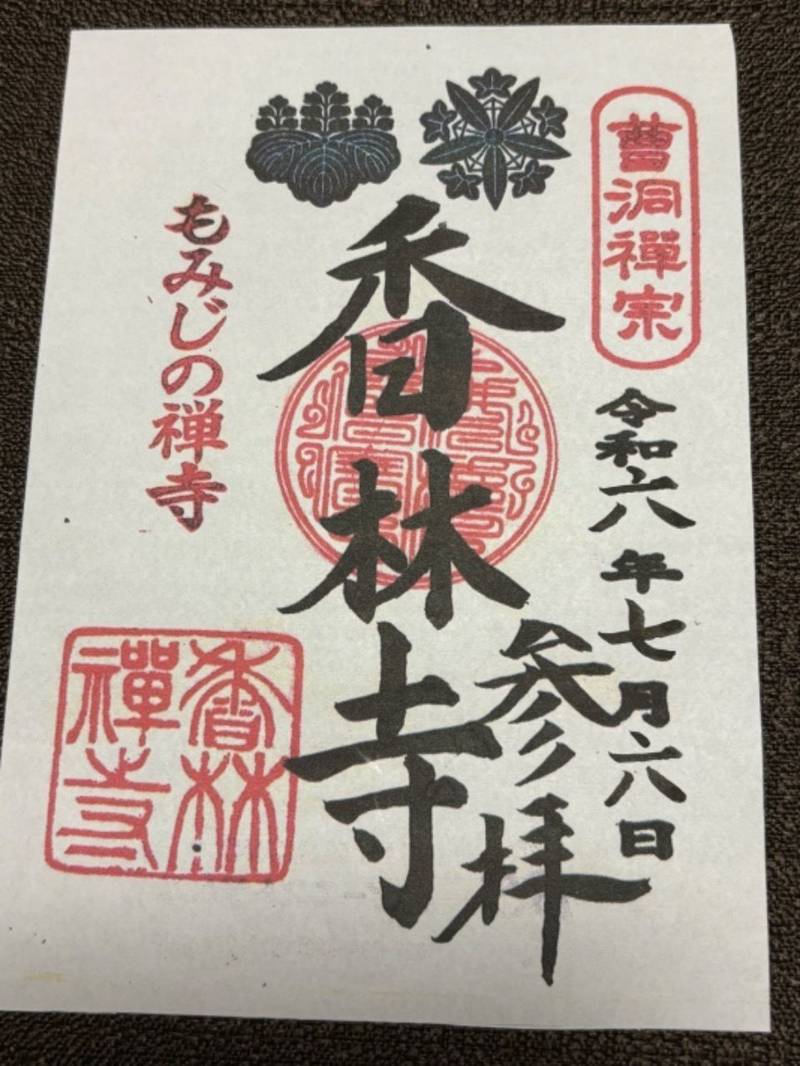 曹洞禅宗
令和六年七月六日
参拝
香林寺
もみじの禅寺
香林
禪寺